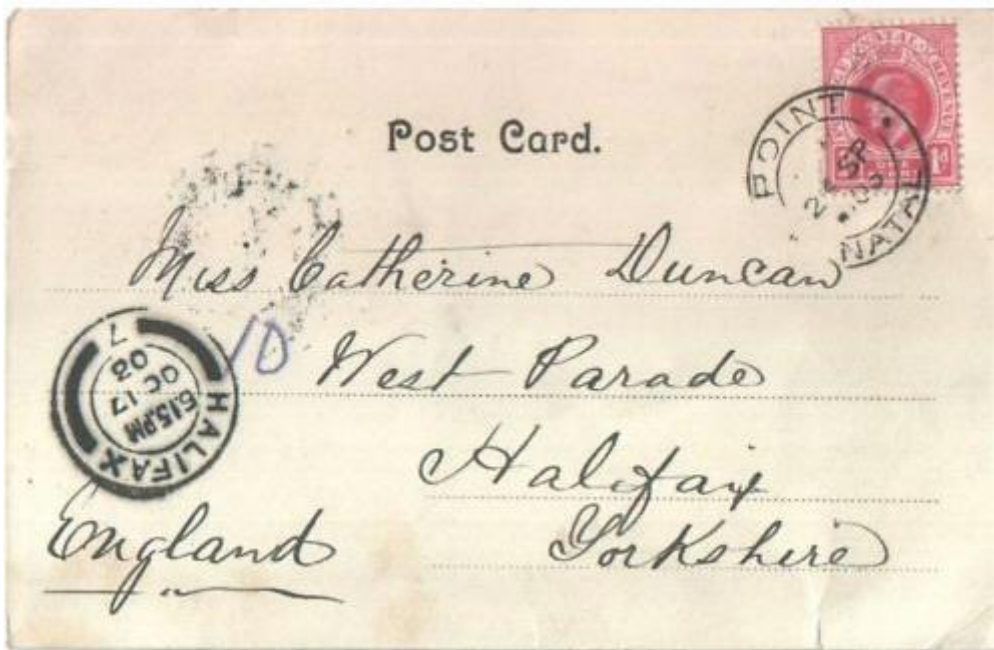 Post Card.
POINT
SP
NATAL
Miss Catherine Duncan
10
West Parade
Halifax
Yorkshire
England
HALIFAX
6.15.PM
OC 17
03
7